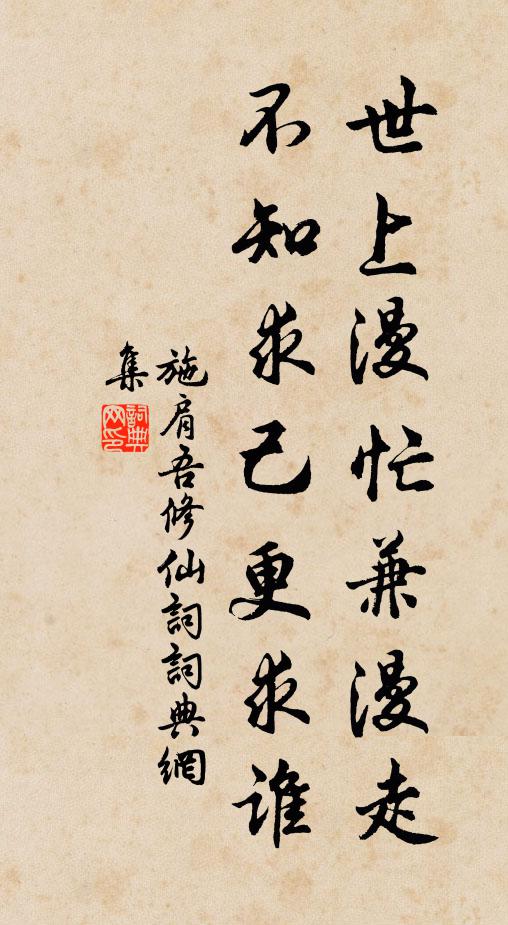 世上漫忙兼漫走
不知求己更求誰
施肩吾修仙詞詞典網
集
詞典网印